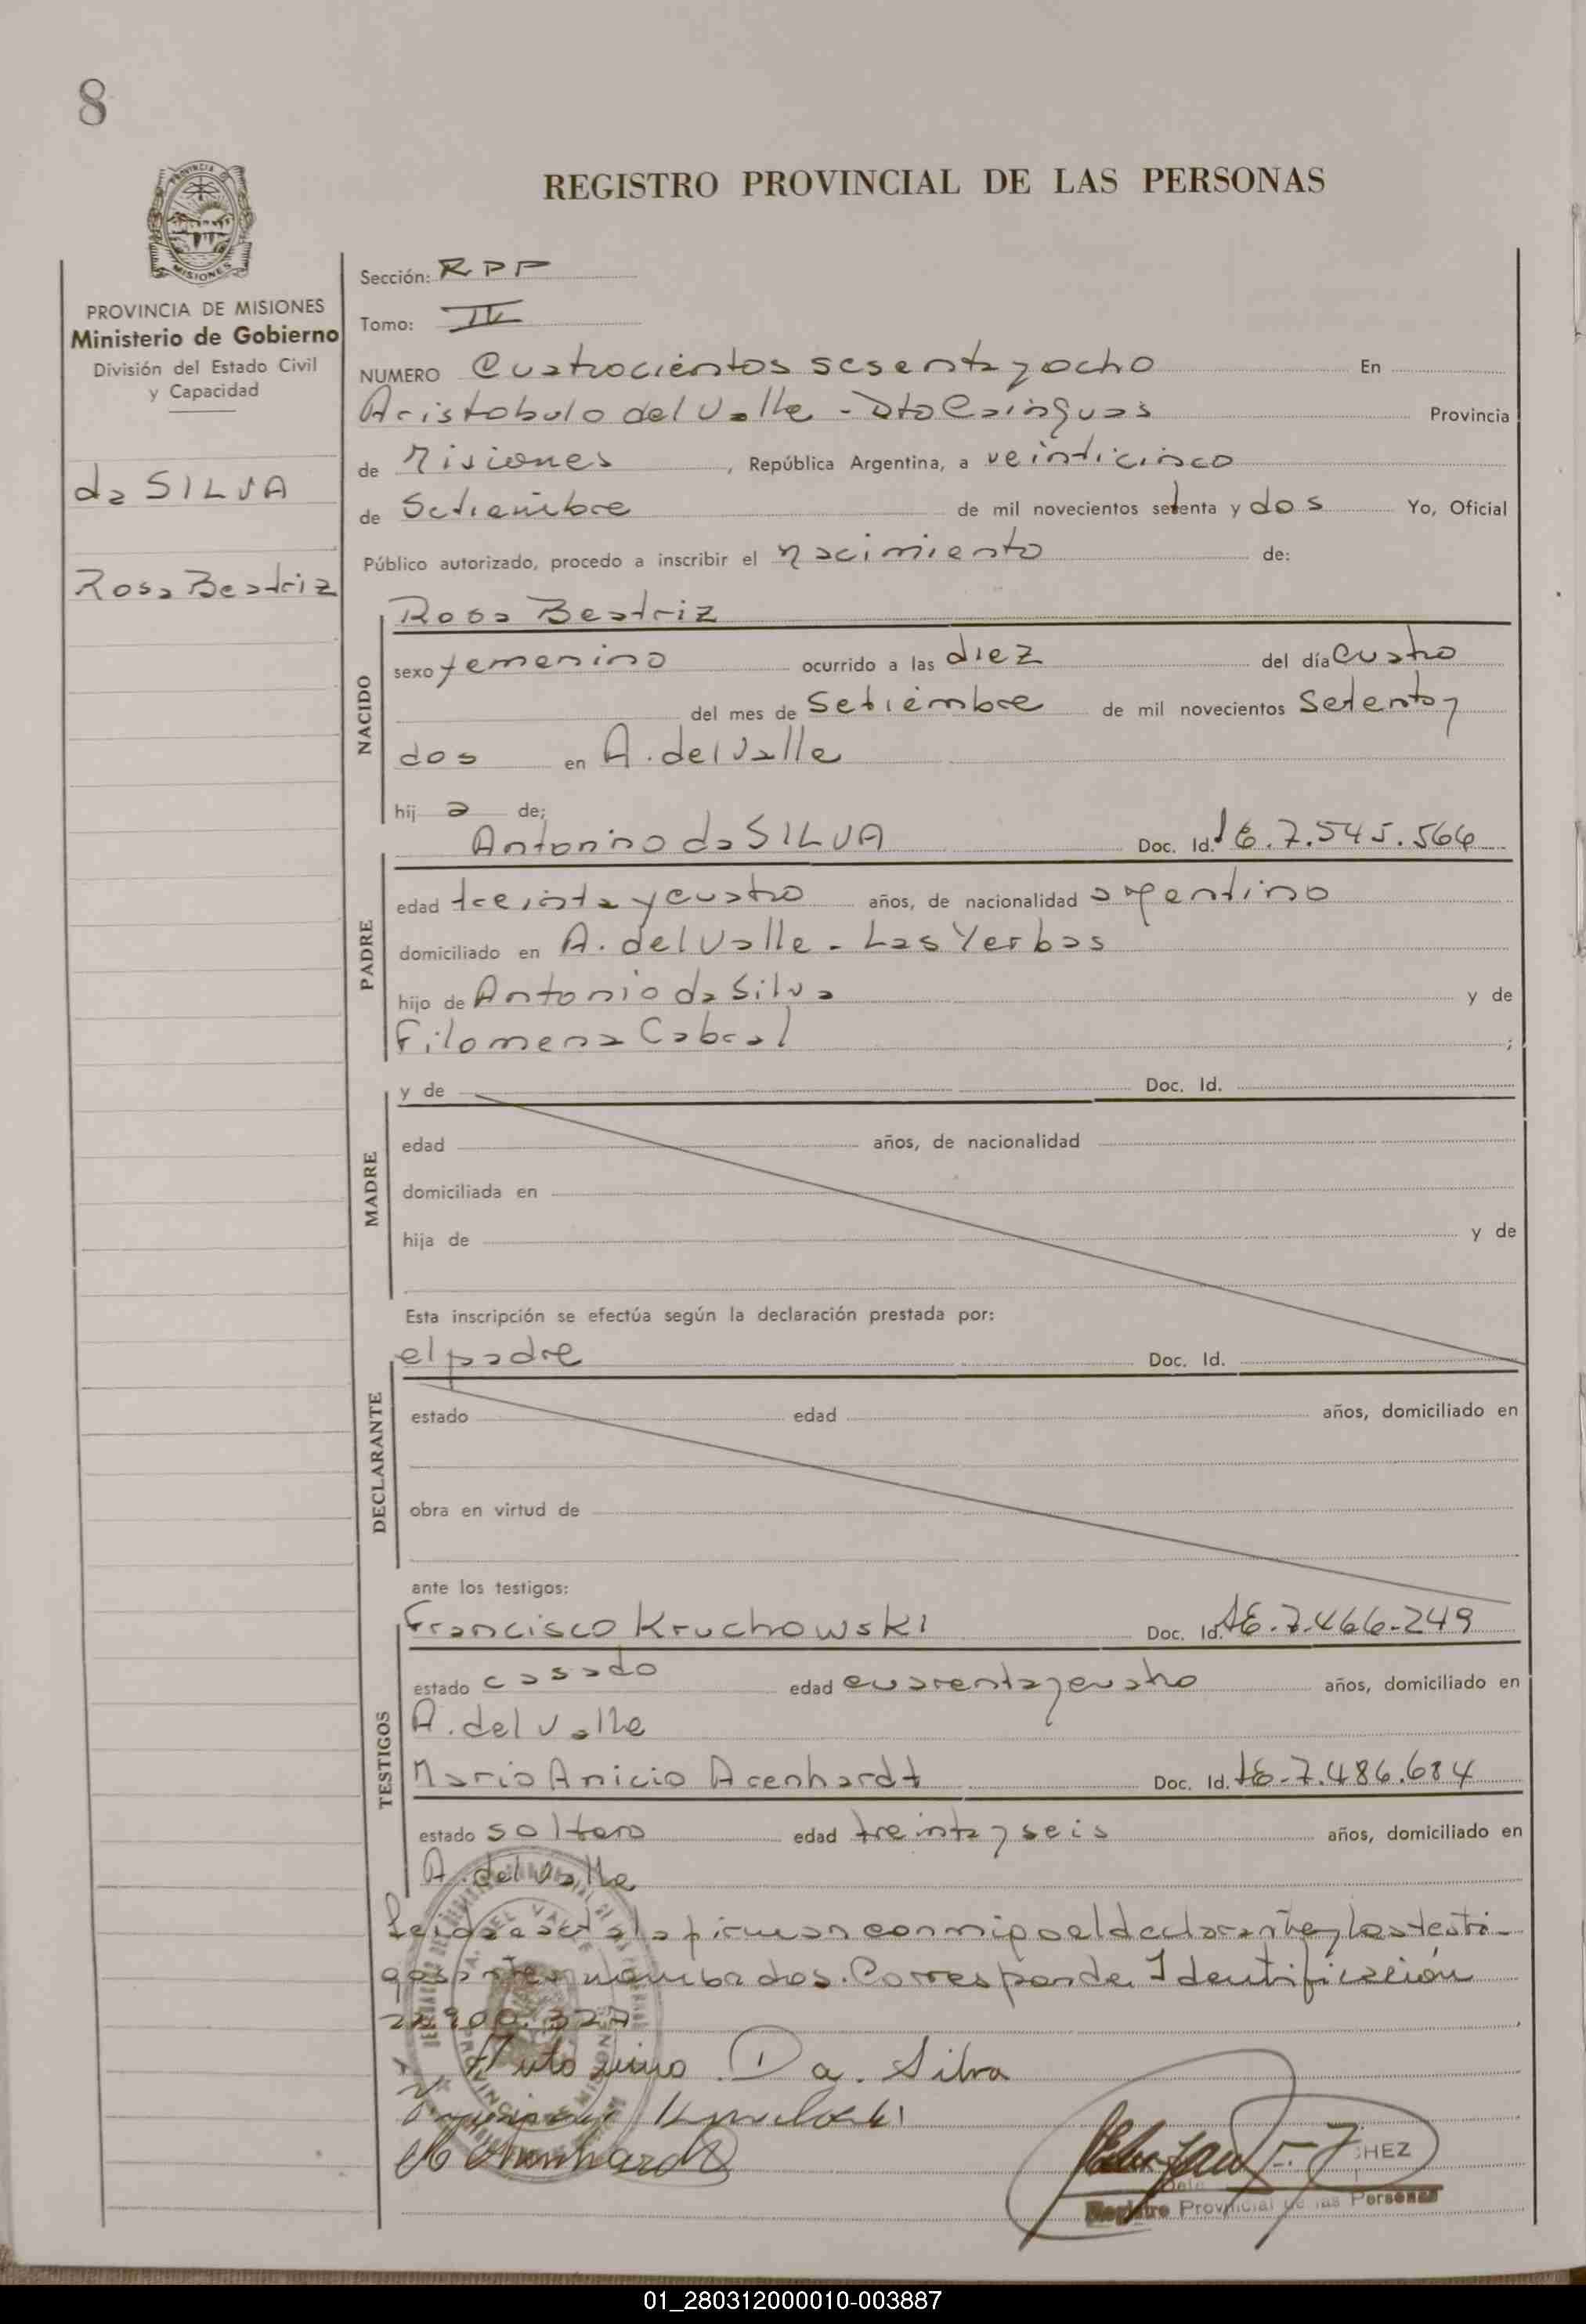 8
PROVINCIA DE
MISIONES
REGISTRO PROVINCIAL DE LAS PERSONAS
PROVINCIA DE MISIONES
Ministerio de Gobierno
División del Estado Civil
y Capacidad
da SILVA
Rosa Beatriz
Sección: RPP
Tomo: IV
NUMERO Cuatrocientos sesenta y ocho En
Aristobulo del Valle - Dto Cainguas Provincia
de Misiones, República Argentina, a veinticinco
de Setiembre de mil novecientos setenta y dos Yo, Oficial
Público autorizado, procedo a inscribir el nacimiento de:
NACIDO
Rosa Beatriz
sexo femenino ocurrido a las diez del día cuatro
del mes de Setiembre de mil novecientos Setenta y
dos en A. del Valle
hij a de;
PADRE
Antonino da SILVA Doc. Id. 7.545.566
edad treinta y cuatro años, de nacionalidad argentino
domiciliado en A. del Valle - Las Yerbas
hijo de Antonio da Silva y de
Filomena Cabral ;
MADRE
y de Doc. Id.
edad años, de nacionalidad
domiciliada en
hija de y de
Esta inscripción se efectúa según la declaración prestada por:
DECLARANTE
el padre Doc. Id.
estado edad años, domiciliado en
obra en virtud de
ante los testigos:
TESTIGOS
Francisco Kruchowski Doc. Id. 7.466.249
estado casado edad cuarenta y cuatro años, domiciliado en
A. del Valle
Mario Anicio Arenhardt Doc. Id. 7.486.684
estado soltero edad treinta y seis años, domiciliado en
A. del Valle
Leida el acta la firman conmigo el declarante y los testi-
gos antes nombrados. Corresponde Identificación
22.900.327
Antonino Da Silva
Arenhardt
CHEZ
Registro Provincial de las Personas
01_280312000010-003887